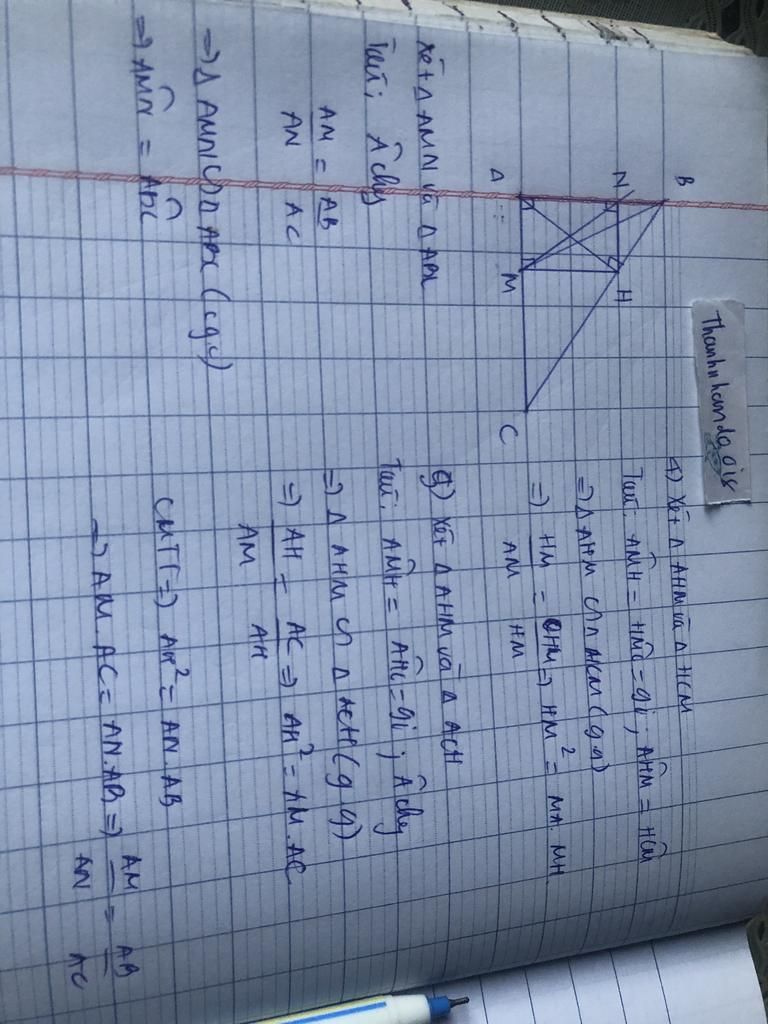 Thanhnhandaois
B
N
H
A
M
C
4) Xét Δ AHM và Δ HCM
Taci: AMH = HMC = gi; AHM = HCM
=) Δ AHM ∽ Δ HCM (g.g)
=) HM/AM = CHM/HM =) HM² = MA. MH
g) Xét Δ AHM và Δ ACH
Taci: AMH = AHC = gi; A chg
=) Δ AHM ∽ Δ ACH (g.g)
=) AH/AM = AC/AH =) AH² = AM. AC
CMTT =) AH² = AN. AB
=) AM. AC = AN. AB =) AM/AN = AB/AC
Xét Δ AMN và Δ ABC
Taci: A chg
AM/AN = AB/AC
=) Δ AMN ∽ Δ ABC (c.g.c)
=) AMN = ABC